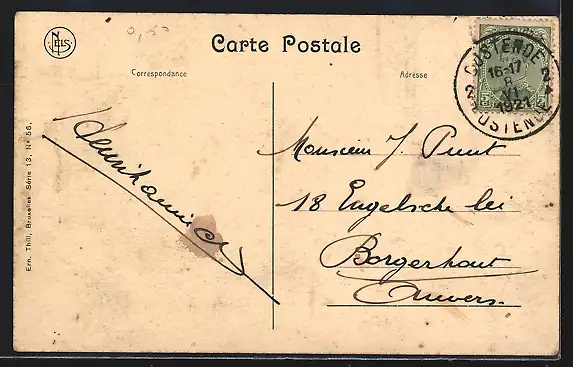 NELS
0,50
Carte Postale
Correspondance
Adresse
OOSTENDE 2
16-17
8
VI
1921
2 OOSTENDE
Monsieur J. Punt
18 Engelsche lei
Borgerhout
Anvers.
Ern. Thill, Bruxelles Série 13, No 56.